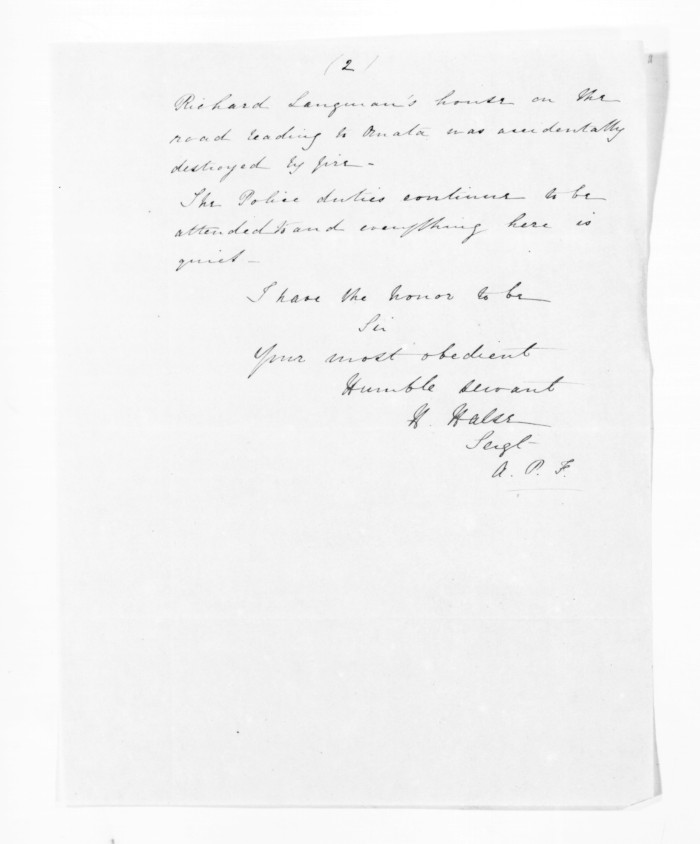 (2)
Richard Langman's house on the
road leading to Omata was accidentally
destroyed by fire -
The Police duties continue to be
attended to and everything here is
quiet -
I have the honor to be
Sir
Your most obedient
Humble servant
H. Halse
Sergt
A. P. F.